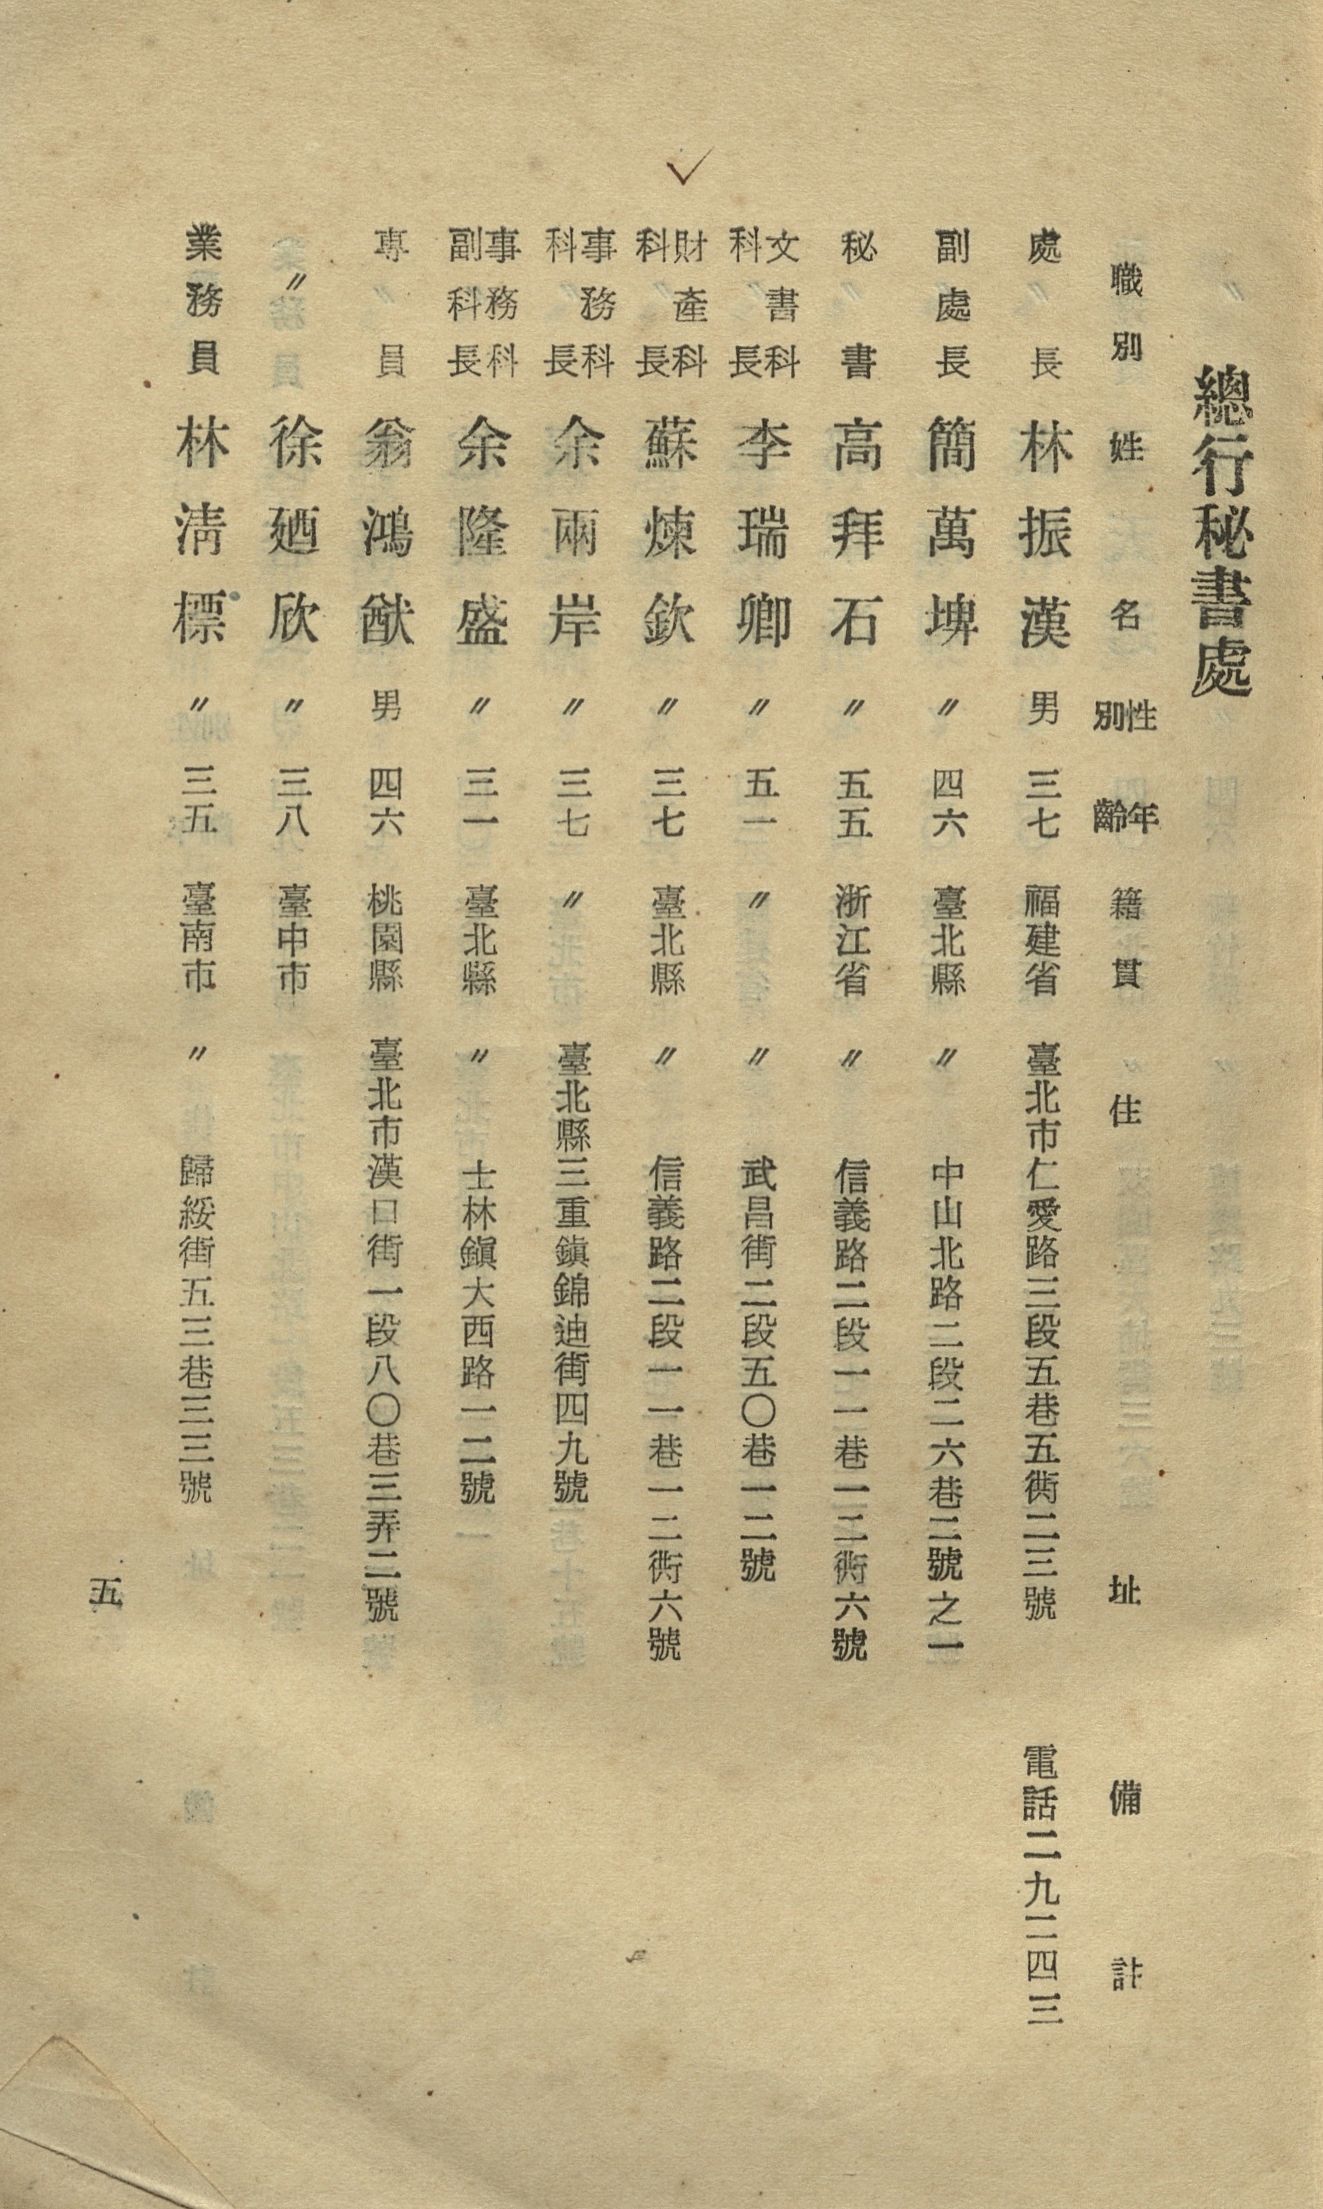 總行秘書處
職別 姓名 性別 年齡 籍貫 住址 備註
處長 林振漢 男 三七 福建省 臺北市仁愛路三段五巷五衖二三號 電話二九二四三
副處長 簡萬埤 〃 四六 臺北縣 〃 中山北路二段二六巷二號之一
秘書 高拜石 〃 五五 浙江省 〃 信義路二段一一巷一二衖六號
文書科科長 李瑞卿 〃 五一 〃 〃 武昌街二段五〇巷一二號
財產科科長 蘇煉欽 〃 三七 臺北縣 〃 信義路二段一一巷一二衖六號
事務科科長 余兩岸 〃 三七 〃 臺北縣三重鎮錦迪街四九號
事務科副科長 余隆盛 〃 三一 臺北縣 〃 士林鎭大西路一二號
專員 翁鴻猷 男 四六 桃園縣 臺北市漢口街一段八〇巷三弄二號
〃 徐廼欣 〃 三八 臺中市
業務員 林淸標 〃 三五 臺南市 〃 歸綏街五三巷三三號
五